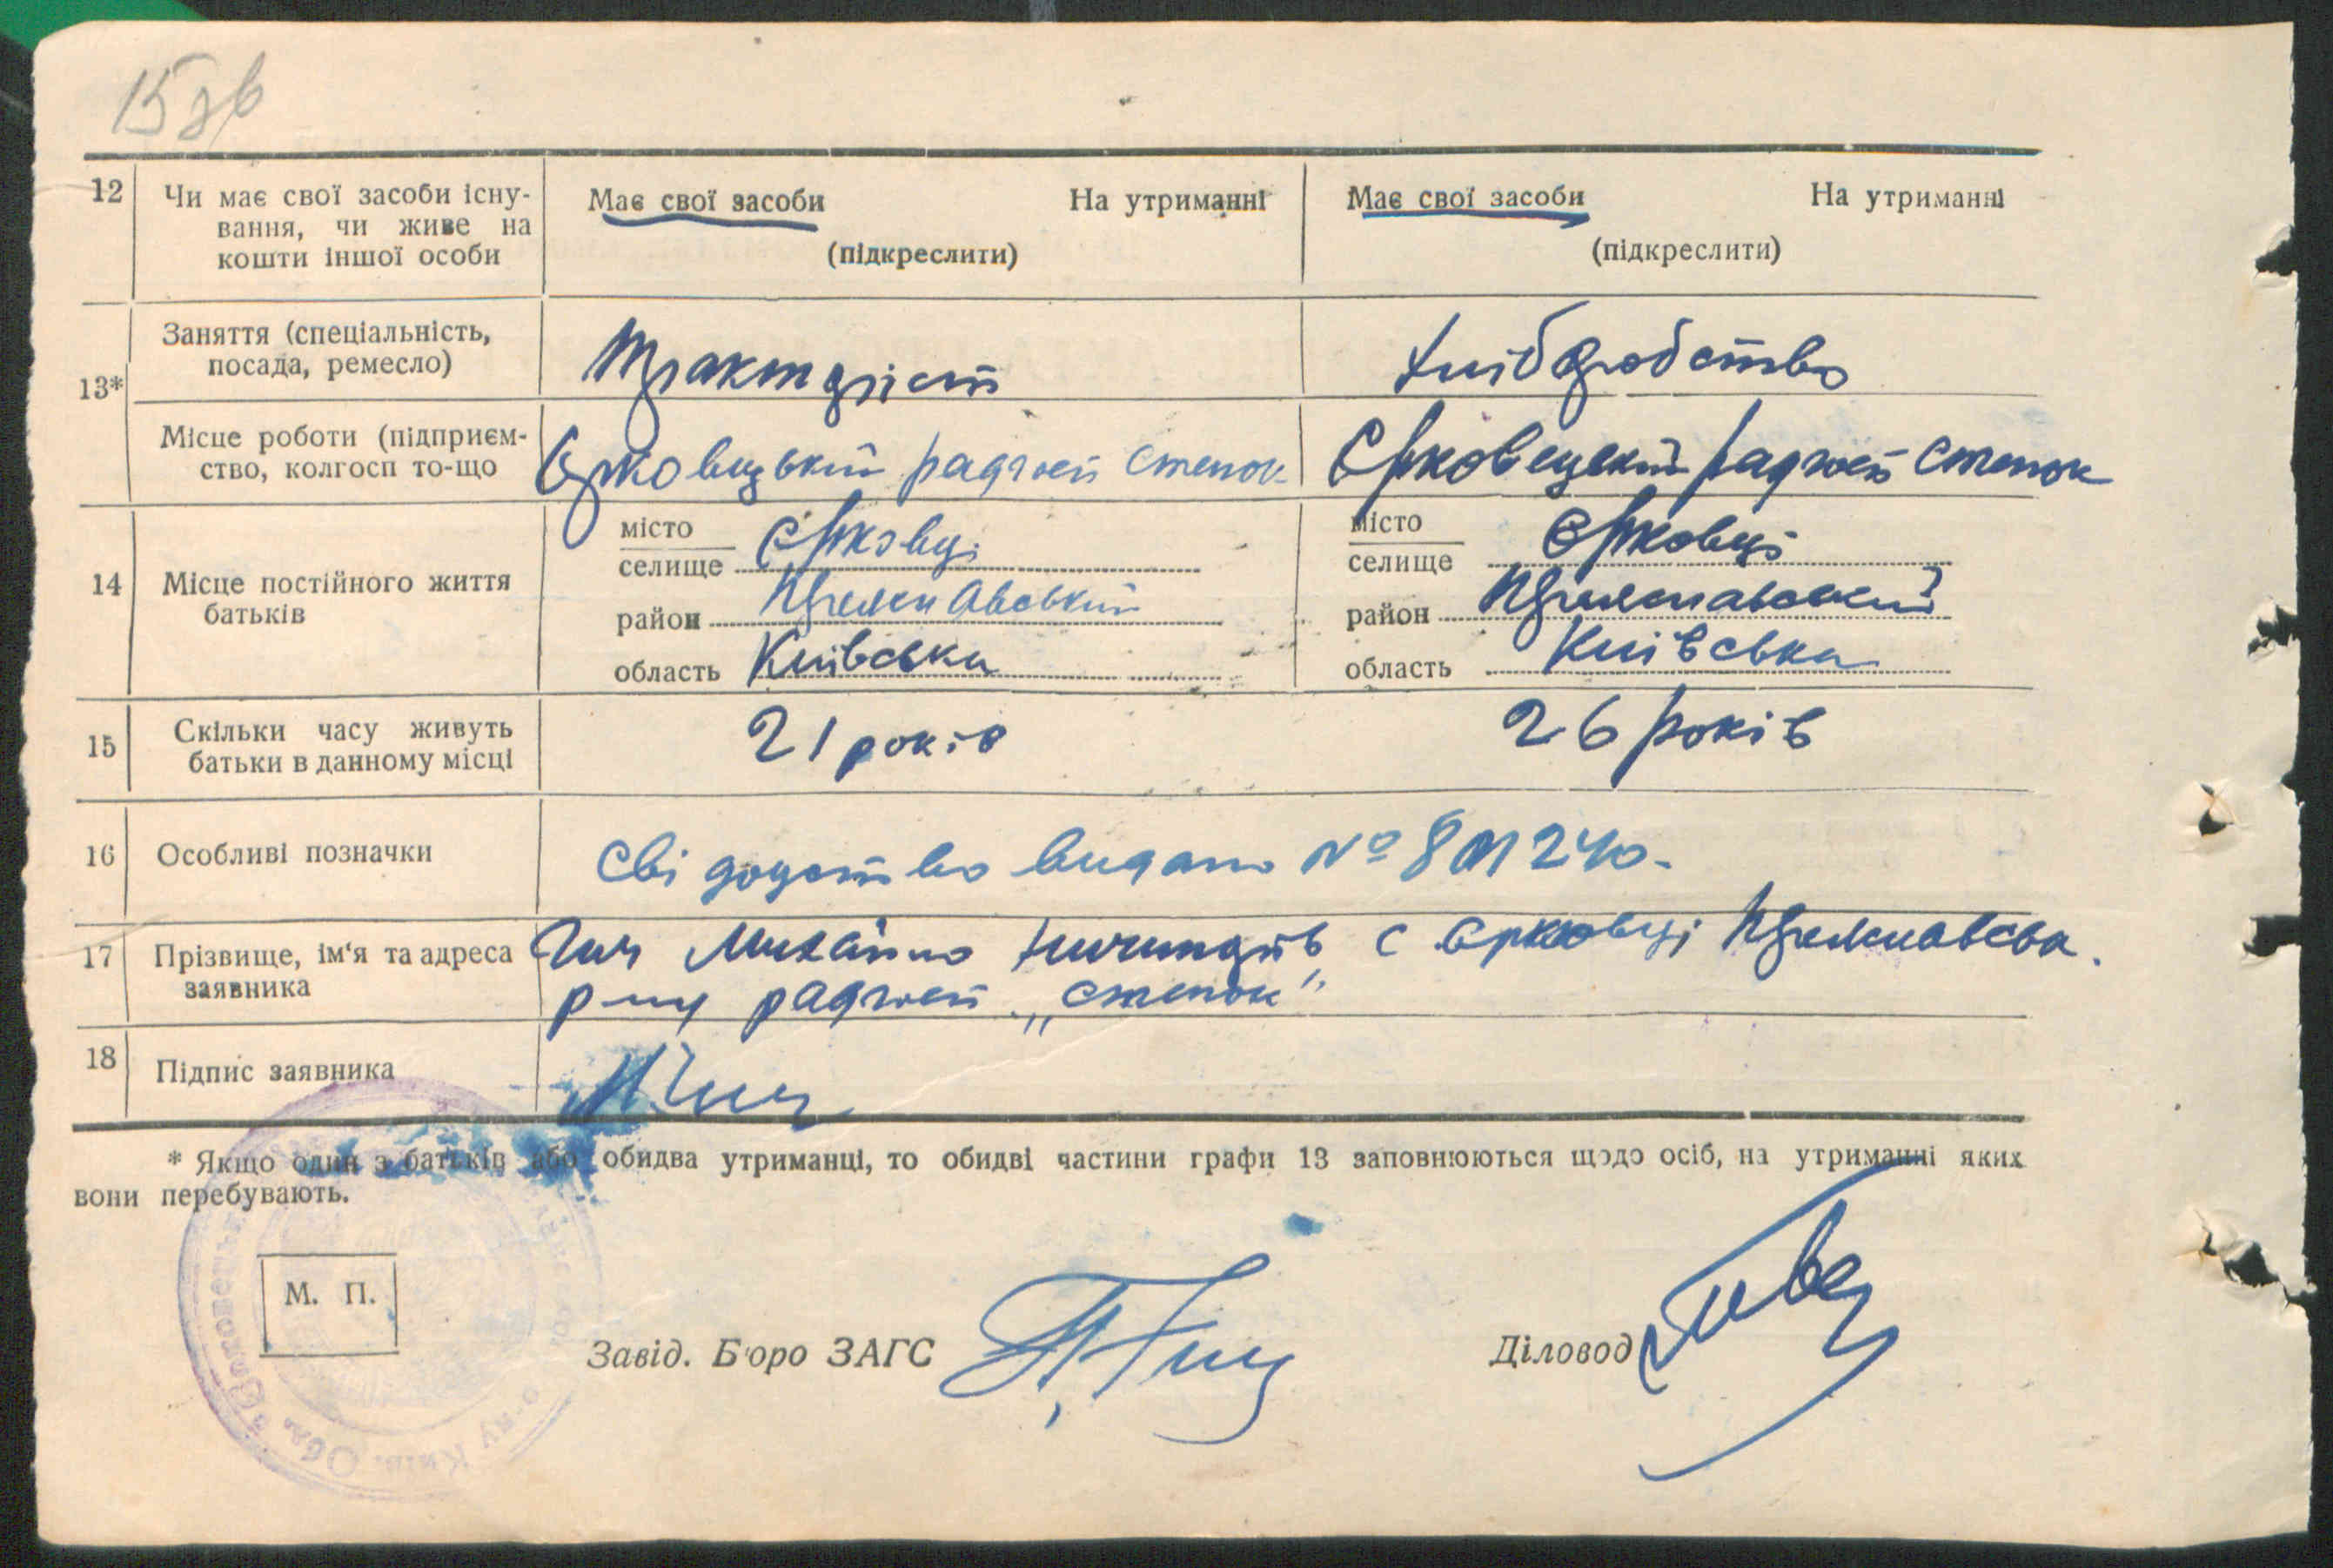 15 зв
12 Чи має свої засоби існу- Має свої засоби На утриманні Має свої засоби На утриманні
вання, чи живе на
кошти іншої особи (підкреслити) (підкреслити)
Заняття (спеціальність,
посада, ремесло) тракторіст хліборобство
13*
Місце роботи (підприєм-
ство, колгосп то-що Єрковецький радгосп Степок Єрковецький радгосп Степок
місто Єрковці місто Єрковці
селище селище
14 Місце постійного життя
батьків
район Переяславський район Переяславський
область Київська область Київська
15 Скільки часу живуть
батьки в данному місці 21 років 26 років
16 Особливі позначки Свідоцтво видано №
17 Прізвище, ім'я та адреса Михайло с Єрковці Переяславськ.
заявника р-ну радгосп „Степок"
18 Підпис заявника
* Якщо один з батьків або обидва утриманці, то обидві частини графи 13 заповнюються щодо осіб, на утриманні яких
вони перебувають.
М. П.
Завід. Бюро ЗАГС Діловод
Київ. Обл.